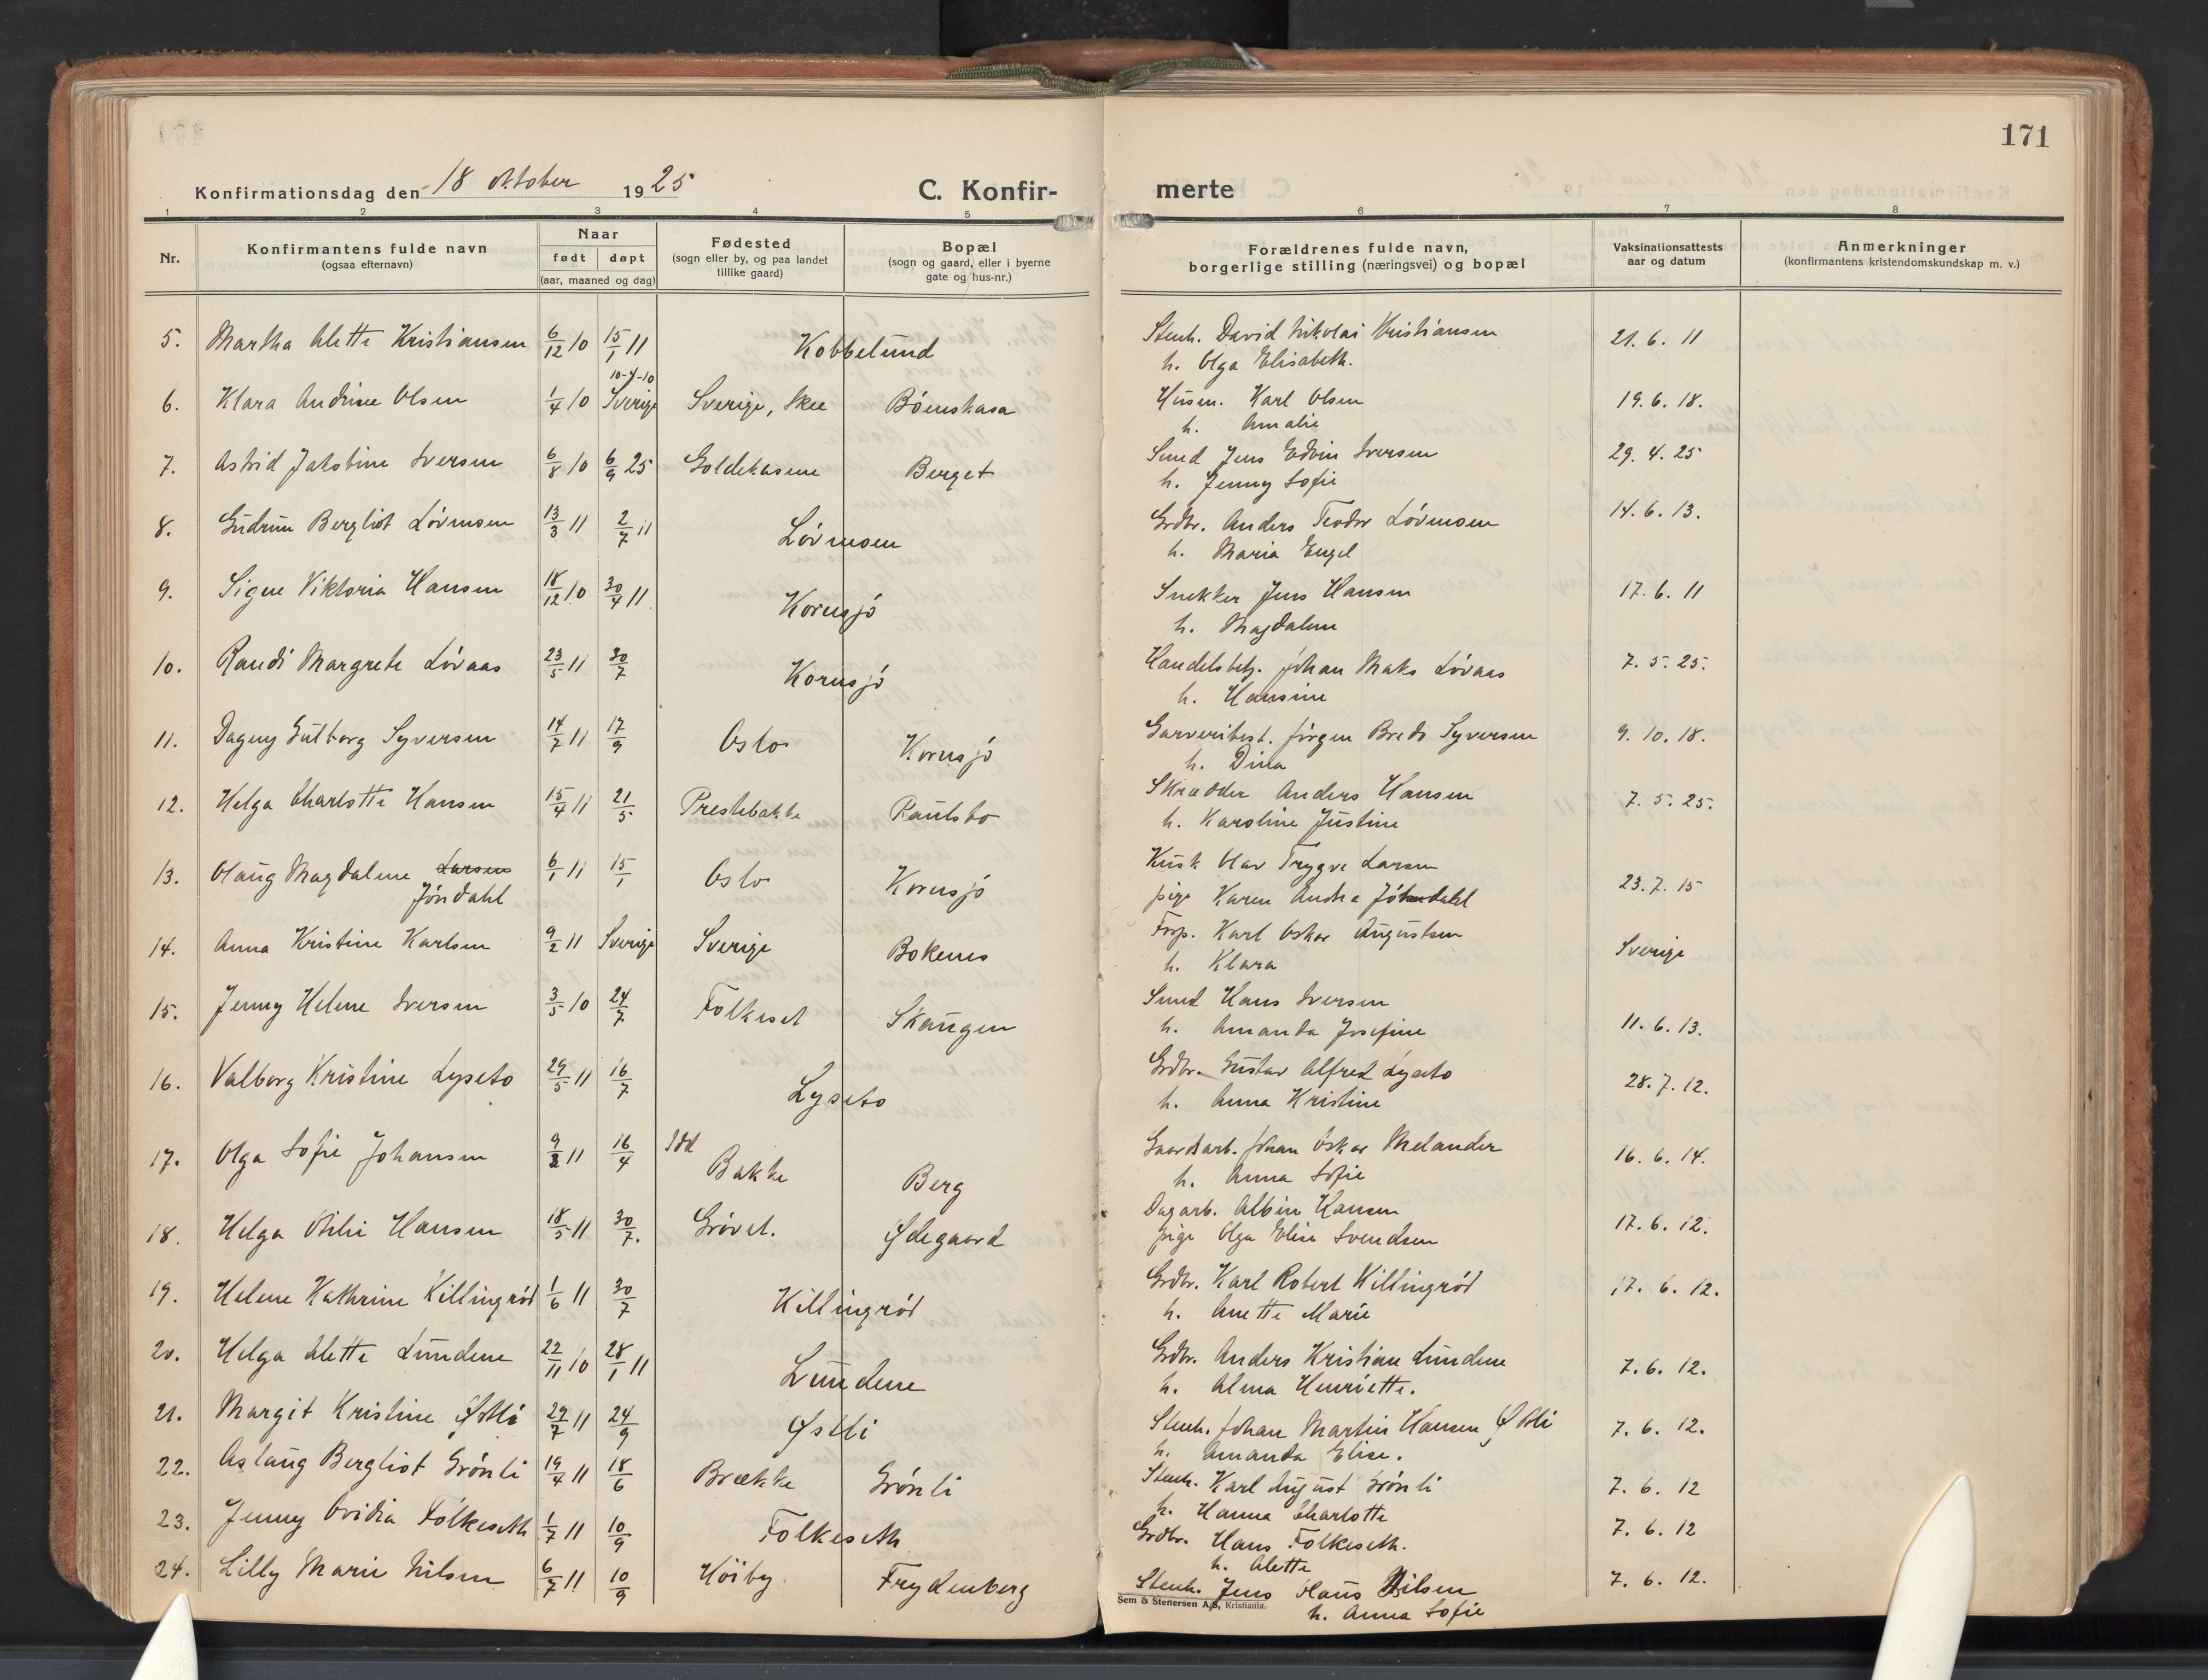 171
Konfirmationsdag den 18 oktober 1925
C. Konfir-
merte
1 2 3 4 5 6 7 8
Nr.
Konfirmantens fulde navn
(ogsaa efternavn)
Naar
født døpt
(aar, maaned og dag)
Fødested
(sogn eller by, og paa landet
tillike gaard)
Bopæl
(sogn og gaard, eller i byerne
gate og hus-nr.)
Forældrenes fulde navn,
borgerlige stilling (næringsvei) og bopæl
Vaksinationsattests
aar og datum
Anmerkninger
(konfirmantens kristendomskundskap m. v.)
5. Martha Alette Kristiansen 6/12 10 15/1 11 Kobbelund Stenh. David Nikolai Kristiansen 21. 6. 11
h. Olga Elisabeth.
10-4-10
6. Klara Andrine Olsen 1/4 10 Sverige Sverige, Skee Böenskasa Husm. Karl Olsen 19. 6. 18.
h. Amalie
7. Astrid Jakobine Iversen 6/8 10 6/9 25 Goldekasene Berget Smed Jens Edvin Iversen 29. 4. 25
h. Jenny Sofie
8. Gudrun Bergliot Lövmoen 13/3 11 2/7 11 Lövmoen Grdbr. Anders Teodor Lövmoen 14. 6. 13.
h. Maria Engel
9. Signe Viktoria Hansen 18/12 10 30/4 11 Kornsjö Snekker Jens Hansen 17. 6. 11
h. Magdalene
10. Randi Margrete Lövaas 23/5 11 30/7 Kornsjö Handelsbetj. Johan Maks Lövaas 7. 5. 25.
h. Hansine
11. Dagny Gulborg Syversen 14/7 11 17/9 Oslo Kornsjö Garveribest. Jörgen Bredo Syversen 9. 10. 18.
h. Dina
12. Helga Charlotte Hansen 15/4 11 21/5 Prestebakke Paulsbo Skrædder Anders Hansen 7. 5. 25.
h. Karoline Justine
13. Olaug Magdalene Larsen 6/1 11 15/1 Oslo Kornsjö Kusk Olav Trygve Larsen 23. 7. 15
Jöndahl
pige Karen Andrea Jöhndahl
14. Anna Kristine Karlsen 9/2 11 Sverige Sverige Bokenes Forp. Karl Oskar Augustsen Sverige
h. Klara
15. Jenny Helene Iversen 3/5 10 24/7 Folkeset Skaugen Smed Hans Iversen 11. 6. 13.
h. Amanda Josefine
16. Valborg Kristine Lyseto 29/5 11 16/7 Lyseto Grdbr. Gustav Alfred Lyseto 28. 7. 12.
h. Anna Kristine
17. Olga Sofie Johansen 9/2 11 16/4 Idd Bakke Berg Gaardsarb. Johan Oskar Melander 16. 6. 14.
h. Anna Sofie
18. Helga Otilie Hansen 18/5 11 30/7. Grövet. Ødegaard Dagarb. Albin Hansen 17. 6. 12.
pige Olga Elise Svendsen
19. Helene Kathrine Killingröd 1/6 11 30/7 Killingröd Grdbr. Karl Robert Killingröd 17. 6. 12.
h. Anette Marie
20. Helga Alette Lundene 22/11 10 28/1 11 Lundene Grdbr. Anders Kristian Lundene 7. 6. 12.
h. Alma Henriette.
21. Margit Kristine Østli 29/7 11 24/9 Østli Stenh. Johan Martin Hansen Østli 7. 6. 12.
h. Amanda Elise.
22. Aslaug Bergliot Grönli 19/4 11 18/6 Brække Grönli Stenh. Karl August Grönli 7. 6. 12
h. Hanna Charlotte
23. Jenny Ovidia Folkeseth 1/7 11 10/9 Folkeseth Grdbr. Hans Folkeseth. 7. 6. 12
h. Alette
24. Lilly Marie Nilsen 6/7 11 10/9 Höiby Frydenberg Stenh. Jens Hans Nilsen 7. 6. 12.
h. Anna Sofie
Sem & Stenersen A/S, Kristiania.